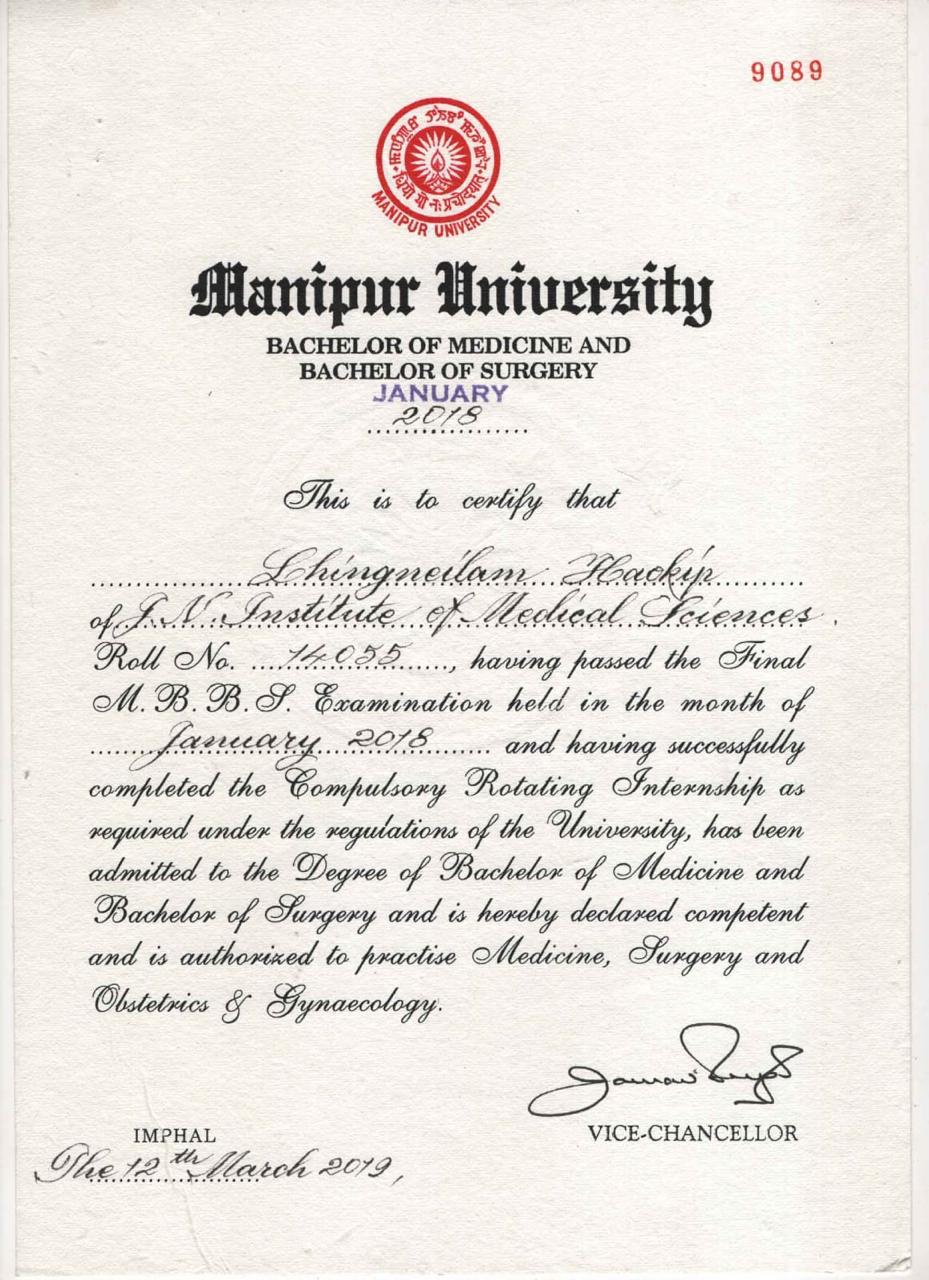 9089
धियो यो नः प्रचोदयात्
MANIPUR UNIVERSITY
Manipur University
BACHELOR OF MEDICINE AND
BACHELOR OF SURGERY
JANUARY
2018
This is to certify that
Lhingneilam Haokip
of J.N. Institute of Medical Sciences.
Roll No. 14055, having passed the Final
M. B. B. S. Examination held in the month of
January 2018 and having successfully
completed the Compulsory Rotating Internship as
required under the regulations of the University, has been
admitted to the Degree of Bachelor of Medicine and
Bachelor of Surgery and is hereby declared competent
and is authorized to practise Medicine, Surgery and
Obstetrics & Gynaecology.
VICE-CHANCELLOR
IMPHAL
The 12th March 2019,